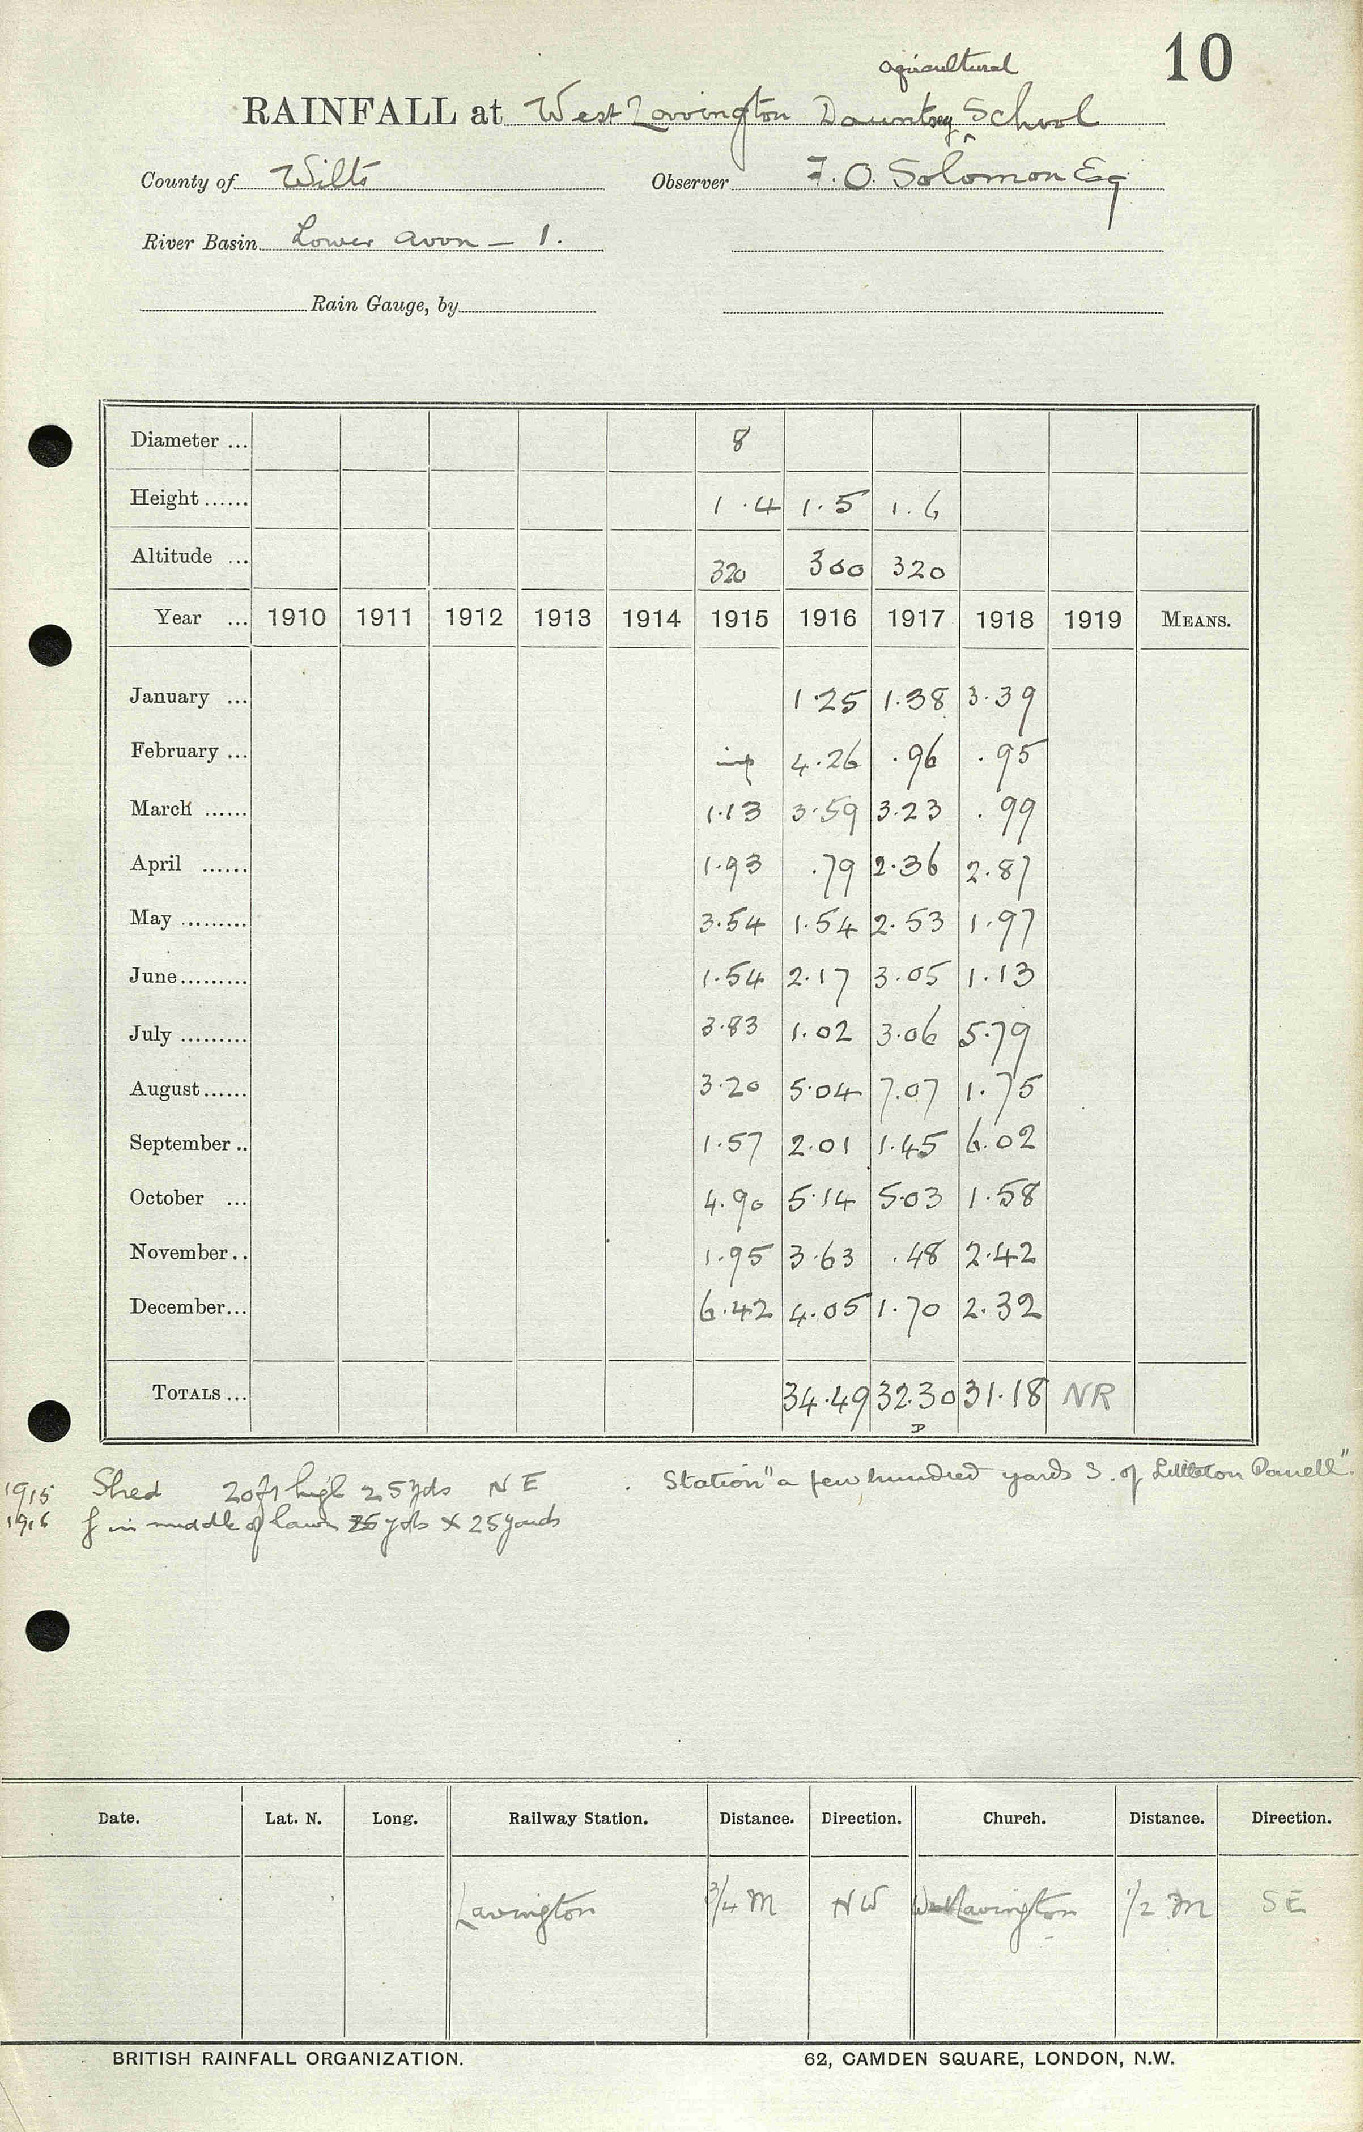 10
agricultural
RAINFALL at West Lavington Dauntsey School
County of Wilts Observer F. O. Solomon Esq
River Basin Lower Avon — 1.
Rain Gauge, by
Diameter ... 8
Height ...... 1.4 1.5 1.6
Altitude ... 320 300 320
Year ... 1910 1911 1912 1913 1914 1915 1916 1917 1918 1919 MEANS.
January ... 1.25 1.38 3.39
February ... 4.26 .96 .95
March ...... 1.13 3.59 3.23 .99
April ...... 1.93 .79 2.36 2.87
May ......... 3.54 1.54 2.53 1.97
June ......... 1.54 2.17 3.05 1.13
July ......... 3.83 1.02 3.06 5.79
August ...... 3.20 5.04 7.07 1.75
September .. 1.57 2.01 1.45 6.02
October ... 4.90 5.14 5.03 1.58
November .. 1.95 3.63 .48 2.42
December ... 6.42 4.05 1.70 2.32
TOTALS ... 34.49 32.30 31.18 NR
D
1915 Shed 20ft high 25 yds N E Station "a few hundred yards S. of Littleton Panell".
1916 in middle of lawn 25 yds X 25 yards
Date. Lat. N. Long. Railway Station. Distance. Direction. Church. Distance. Direction.
Lavington 3/4 M NW West Lavington 1/2 M SE
BRITISH RAINFALL ORGANIZATION. 62, CAMDEN SQUARE, LONDON, N.W.